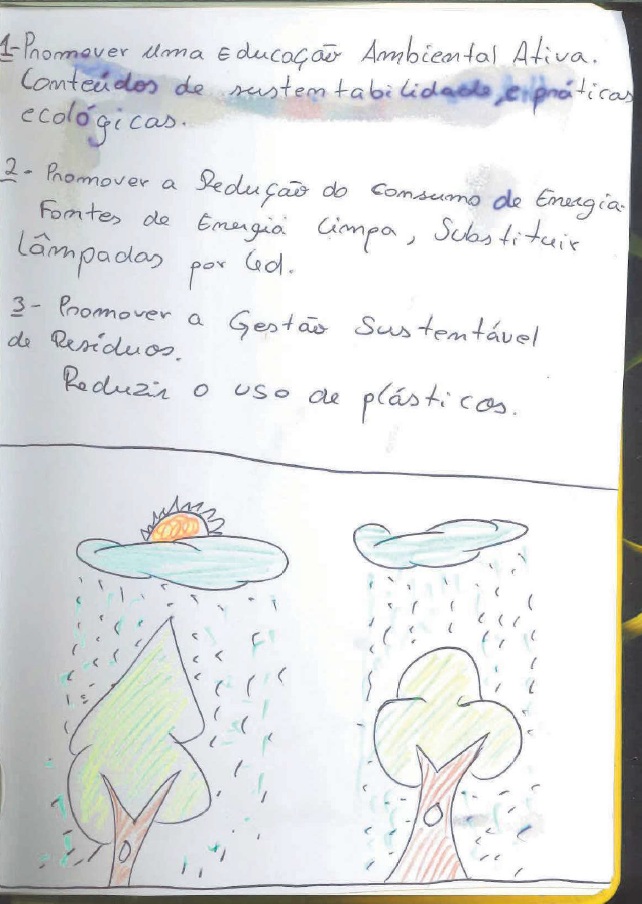 1-Promover uma Educação Ambiental Ativa.
Conteúdos de sustentabilidade, e práticas
ecológicas.
2- Promover a Redução do consumo de Energia.
Fontes de Energia Limpa, Substituir
lâmpadas por Led.
3- Promover a Gestão Sustentável
de Resíduos.
Reduzir o uso de plásticos.